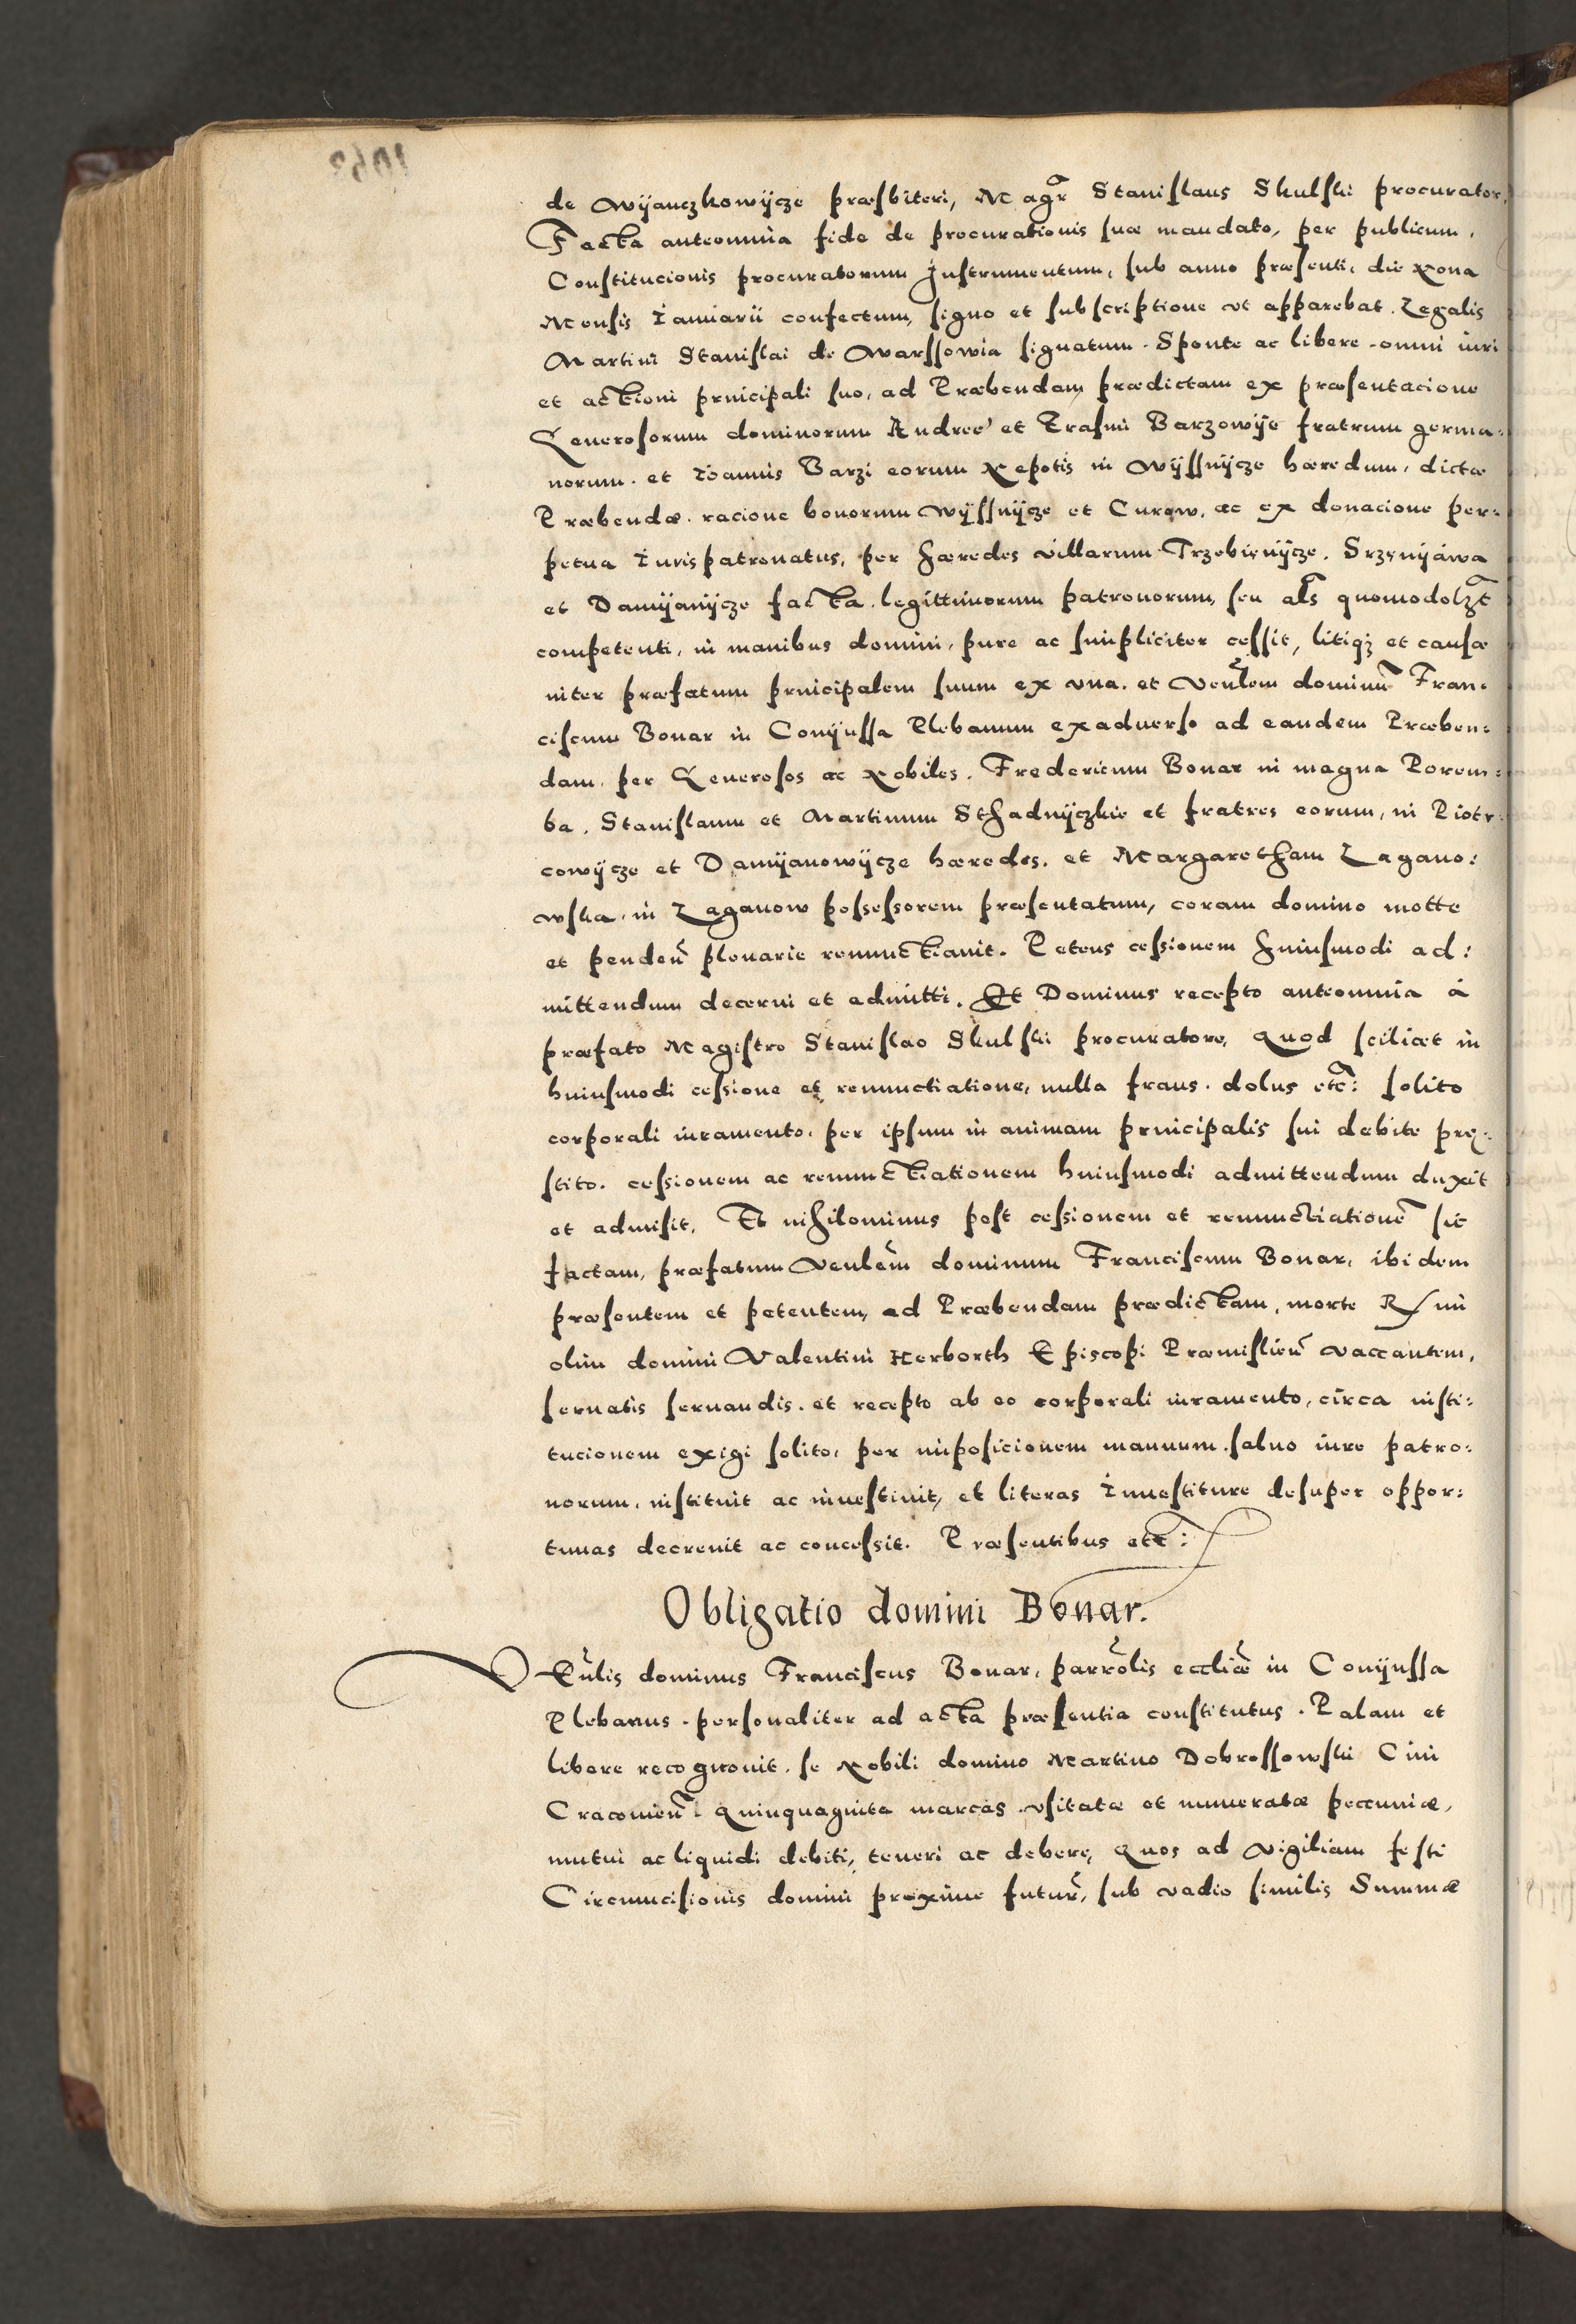 de Wyanczkowycze præsbiteri, Magr̃ Stanislaus Skulski procurator,
Facta anteomnia fide de procurationis suæ mandato, per publicum,
Constitucionis procuratorum Instrumentum, sub anno præsenti, die Nona
Mensis Ianuarii confectum, signo et subscriptione vt apparebat. Legalis
Martini Stanislai de Warssowia signatum. Sponte ac libere. omni iuri
et actioni principali suo, ad Præbendam prædictam ex præsentacione
Generosorum dominorum Andreę et Erasmi Barzowije fratrum germa:
norum. et Ioannis Barzi eorum Nepotis in Wyssnycze hæredum, dictæ
Præbendæ. racione bonorum Wyssnycze et Curow, ac ex donacione per:
petua Iurispatronatus, per hæredes villarum Trzebienycze. Srzenyawa
et Damyanycze facta. legittimorum patronorum, seu als̃ quomodolzt̃
competenti, in manibus domini, pure ac simpliciter cessit, litiqz et causæ
inter præfatum principalem suum ex vna. et Venlem̃ dominũ Fran:
ciscum Bonar in Conyussa Plebanum exaduerso ad eandem Præben:
dam, per Generosos ac Nobiles. Fredericum Bonar in magna Porem:
ba. Stanislaum et Martinum Sthadnyczkie et fratres eorum, in Piotr:
cowycze et Damyanowycze hæredes. et Margaretham Laganο:
wska. in Laganow possessorem præsentatum, coram domino motte
et pendeñ plenarie renunctiauit. Petens cessionem huiusmodi ad:
mittendum decerni et admitti. Et Dominus recepto anteomnia á
præfato Magistro Stanislao Skulski procuratore, quod scilicet in
huiusmodi cessione et renunctiatione, nulla fraus. dolus etc̃: solito
corporali iuramento. per ipsum in animam principalis sui debite prę:
stito. cessionem ac renunctiationem huiusmodi admittendum duxit
et admisit. Et nihilominus post cessionem et renunctiationẽ sic
factam, præfatum Venlem̃ dominum Franciscum Bonar, ibidem
præsentem et petentem, ad Præbendam prædictam, morte Rmi
olim domini Valentini Herborth Episcopi Præmislieñ vaccantem,
seruatis seruandis. et recepto ab eo corporali iuramento, circa insti:
tucionem exigi solito, per imposicionem manuum. saluo iure patro:
norum, instituit ac inuestiuit, et literas Inuestiture desuper oppor:
tunas decreuit ac concessit. Præsentibus etc̃:
Obligatio domini Bonar.
VEnlis̃ dominus Franciscus Bonar, parrolis̃ eccliæ̃ in Conyussa
Plebanus. personaliter ad acta præsentia constitutus. Palam et
libere recognouit. se Nobili domino Martino Dobrossowski Ciui
Cracouieñ. quinquaginta marcas vsitatæ et numeratæ peccuniæ,
mutui ac liquidi debiti, teneri ac debere, quos ad vigiliam festi
Circumcisionis domini proxime futur̃, sub vadio similis Summæ